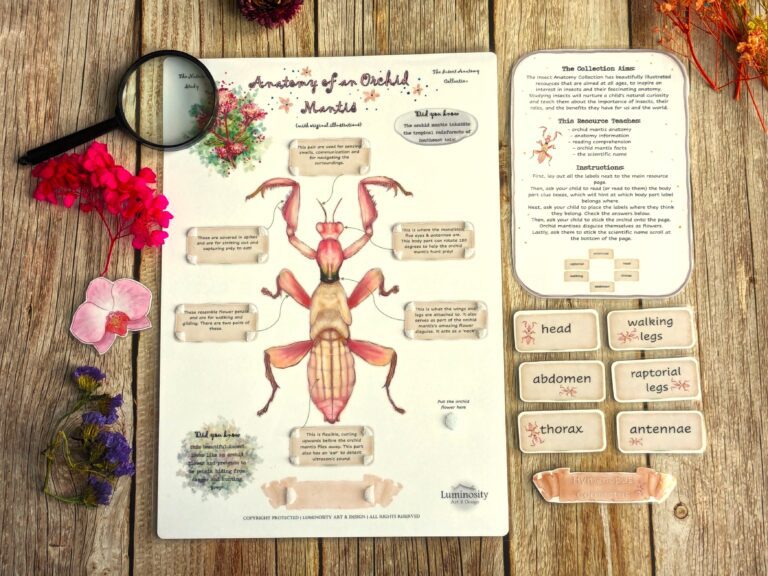 The Nature
Study
Anatomy of an Orchid
Mantis
(with original illustrations)
The Insect Anatomy
Collection
Did you know
The orchid mantis inhabits
the tropical rainforests of
Southeast Asia.
This pair are used for sensing
smells, communication and
for navigating the
surroundings.
These are covered in spikes
and are for striking out and
capturing prey to eat!
This is where the mandibles,
five eyes & antennae are.
This body part can rotate 180
degrees to help the orchid
mantis hunt prey!
These resemble flower petals
and are for walking and
gliding. There are two pairs of
these.
This is what the wings and
legs are attached to. It also
serves as part of the orchid
mantis's amazing flower
disguise. It acts as a 'neck'
This is flexible, curling
upwards before the orchid
mantis flies away. This part
also has an 'ear' to detect
ultrasonic sound.
Put the orchid
flower here
Did you know
This beautiful insect
looks like an orchid
flower and pretends to
be petals, hiding from
danger and hunting
prey!
Luminosity
Art & Design
COPYRIGHT PROTECTED | LUMINOSITY ART & DESIGN | ALL RIGHTS RESERVED
The Collection Aims:
The Insect Anatomy Collection has beautifully illustrated
resources that are aimed at all ages, to inspire an
interest in insects and their fascinating anatomy.
Studying insects will nurture a child's natural curiosity
and teach them about the importance of insects, their
roles, and the benefits they have for us and the world.
This Resource Teaches:
- orchid mantis anatomy
- anatomy information
- reading comprehension
- orchid mantis facts
- the scientific name
Instructions:
First, lay out all the labels next to the main resource
page.
Then, ask your child to read (or read to them) the body
part clue boxes, which will hint at which body part label
belongs where.
Next, ask your child to place the labels where they think
they belong. Check the answers below.
Then, ask your child to stick the orchid onto the page.
Orchid mantises disguise themselves as flowers.
Lastly, ask them to stick the scientific name scroll at
the bottom of the page.
antennae
raptorial
head
walking
thorax
abdomen
head
walking
legs
abdomen
raptorial
legs
thorax
antennae
Hymenopus